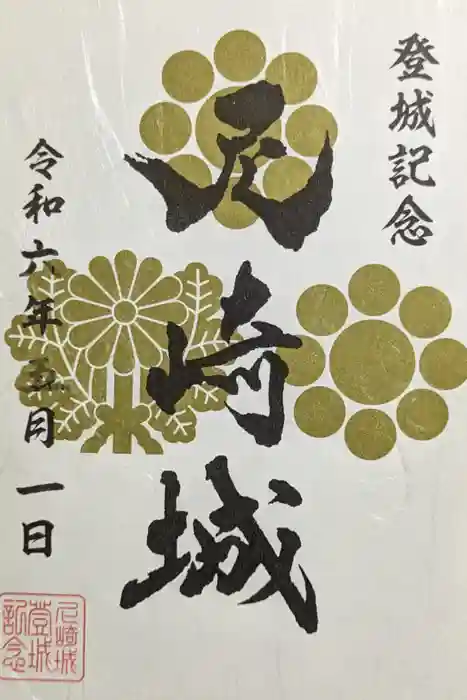 登城記念
尼崎城
令和六年五月一日
尼崎城
登城
記念